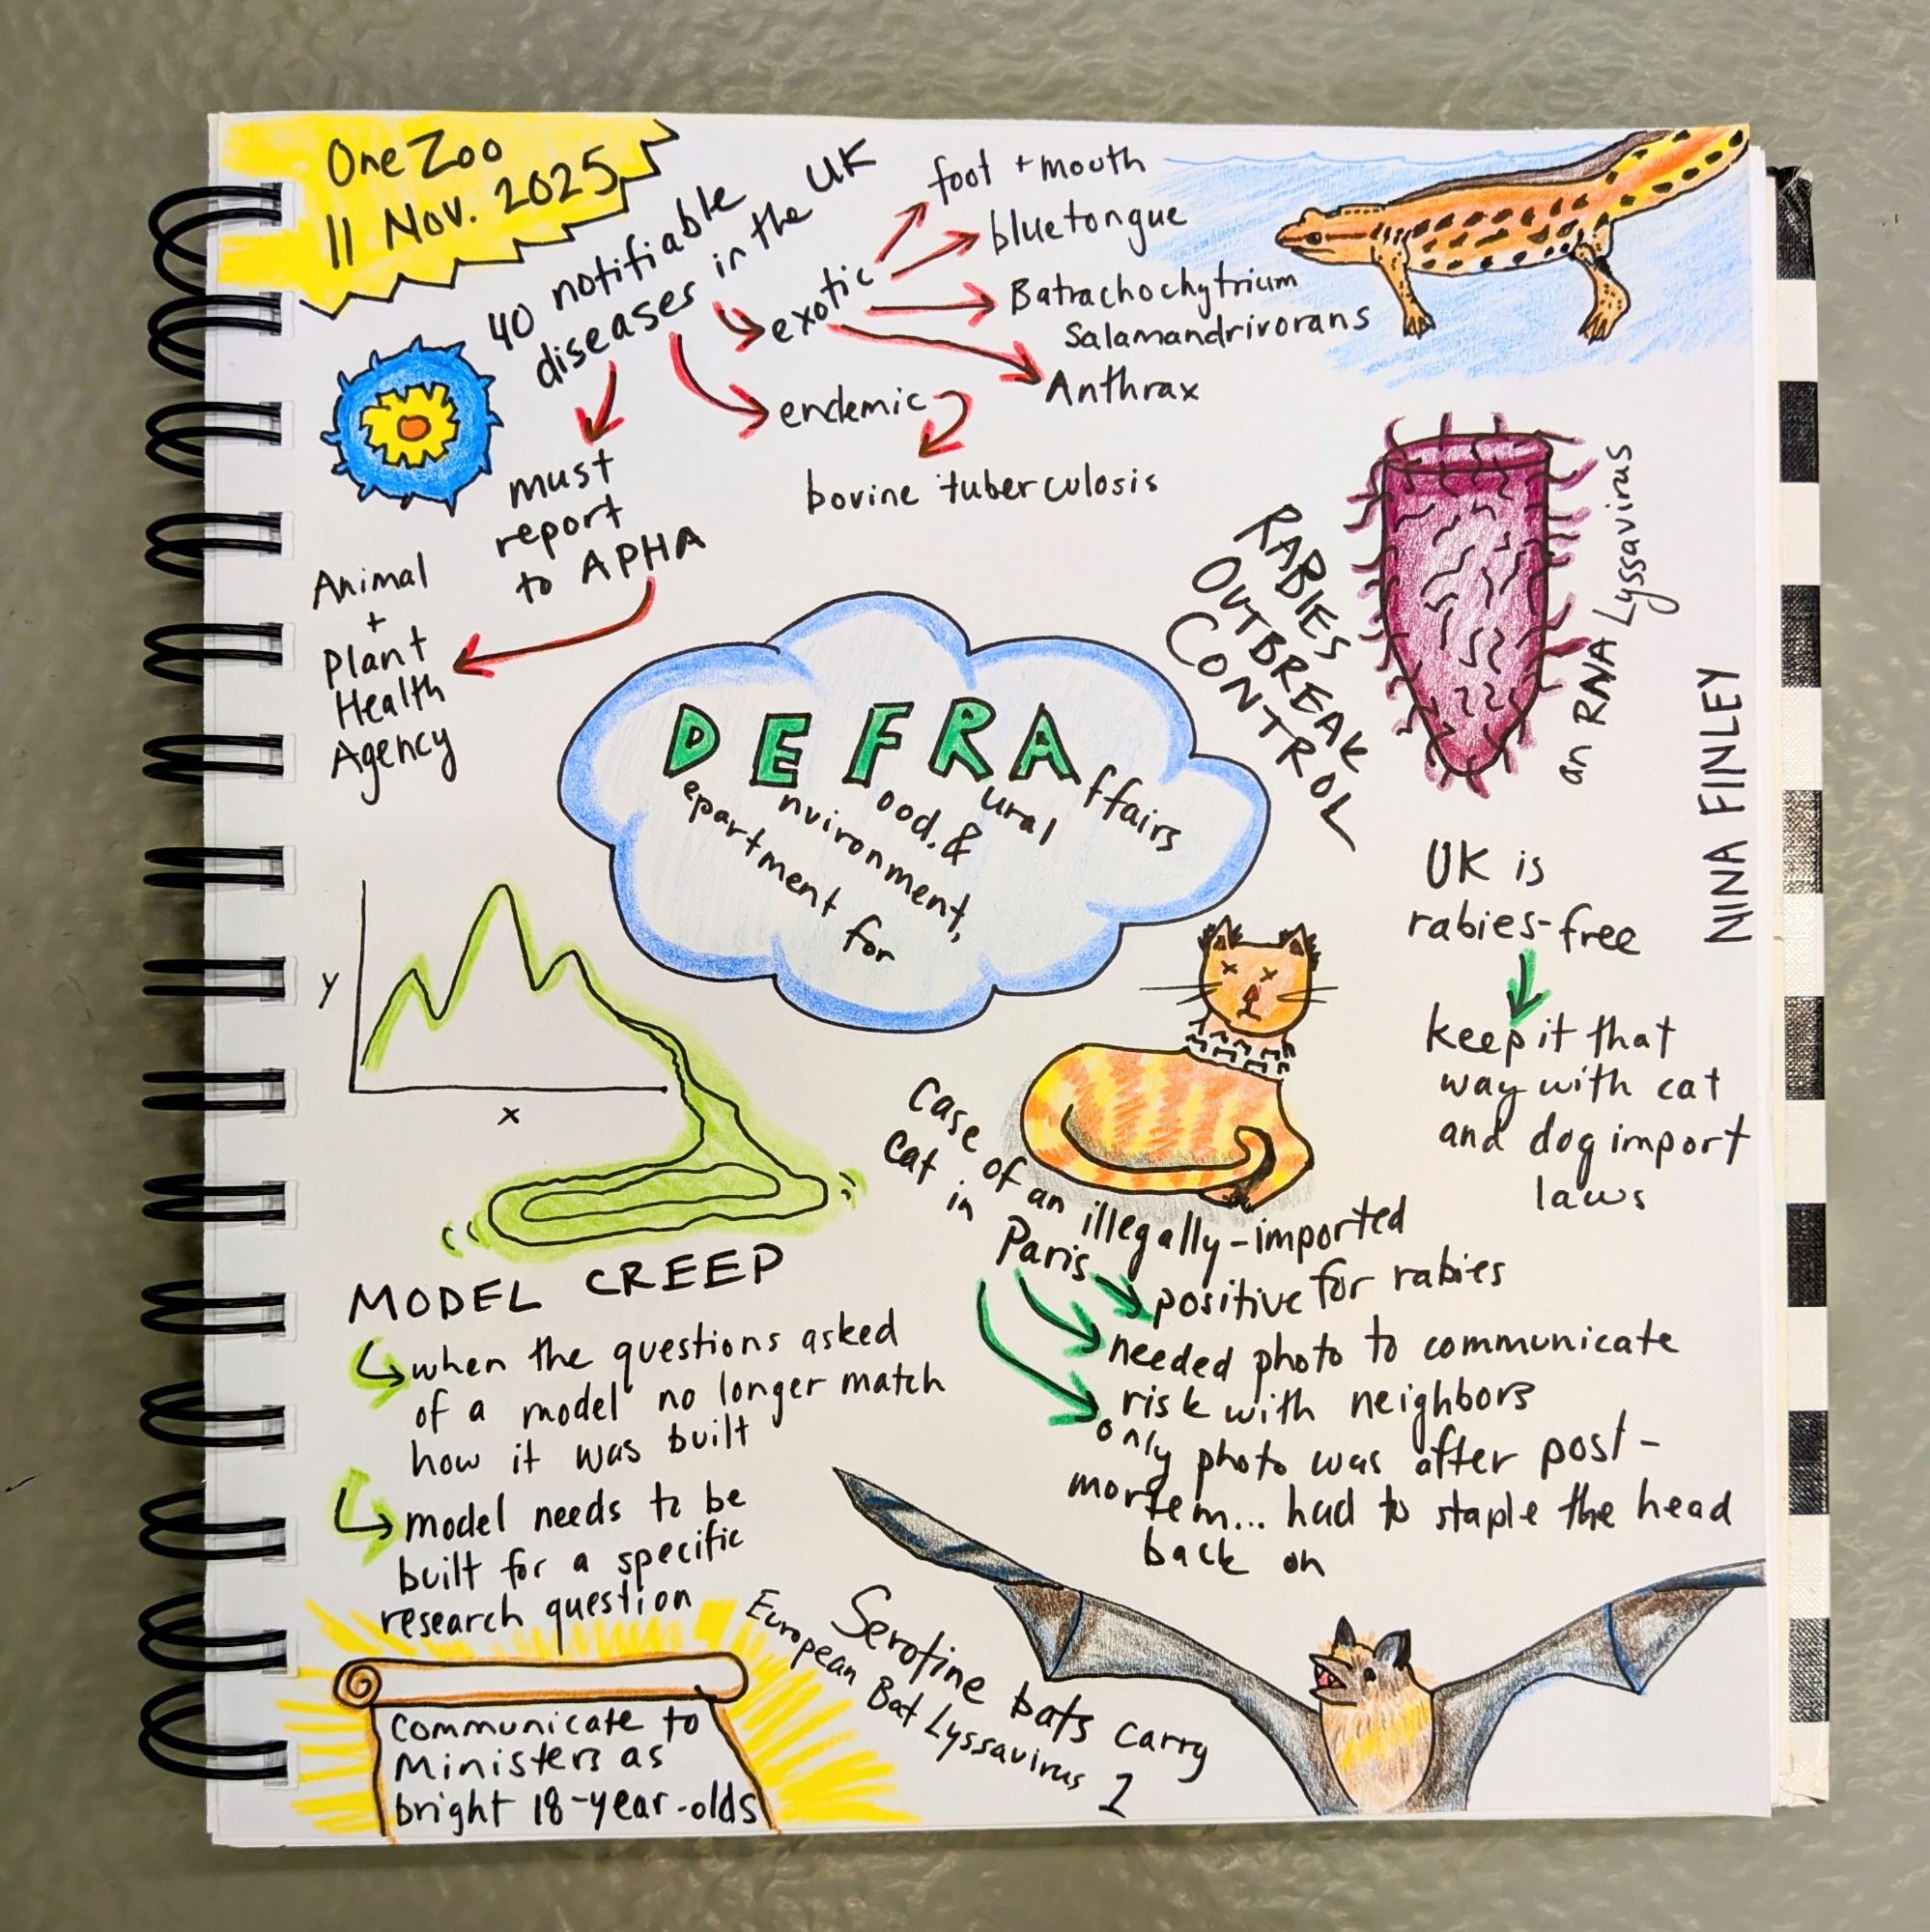 One Zoo
11 Nov. 2025
40 notifiable
diseases in the UK
exotic
foot + mouth
bluetongue
Batrachochytrium
Salamandrivorans
Anthrax
endemic
bovine tuberculosis
must
report
to APHA
Animal
+
Plant
Health
Agency
DEFRA
epartment for
nvironment,
ood. &
ural
ffairs
RABIES
OUTBREAK
CONTROL
an RNA Lyssavirus
NINA FINLEY
UK is
rabies-free
keep it that
way with cat
and dog import
laws
y
x
MODEL CREEP
when the questions asked
of a model no longer match
how it was built
model needs to be
built for a specific
research question
Case of an illegally-imported
cat in Paris
positive for rabies
needed photo to communicate
risk with neighbors
only photo was after post-
mortem... had to staple the head
back on
Serotine bats carry
European Bat Lyssavirus 1
Communicate to
Ministers as
bright 18-year-olds